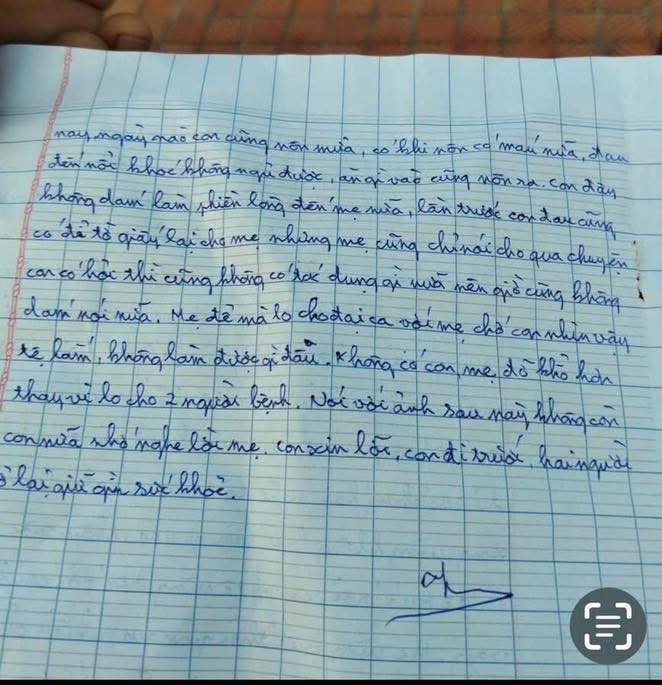 nay ngày nào con cũng nôn mửa, có khi nôn có máu nữa, đau
đến nỗi khóc không ngủ được, ăn gì vào cũng nôn ra. con đây
không dám làm phiền lòng đến mẹ nữa, lần trước con đau cũng
có để tờ giấy lại cho mẹ nhưng mẹ cũng chỉ nói cho qua chuyện
con có học thì cũng không có tác dụng gì nữa nên giờ cũng không
dám nói nữa. Mẹ để mà lo cho đại ca với mẹ, chớ con nhìn vậy
tệ lắm, không làm được gì đâu. không có con, mẹ đỡ khổ hơn
thay vì lo cho 2 người bệnh. Nói với anh sau này không còn
con nữa nhớ nghe lời mẹ. con xin lỗi, con đi trước, hai người
ở lại giữ gìn sức khoẻ.